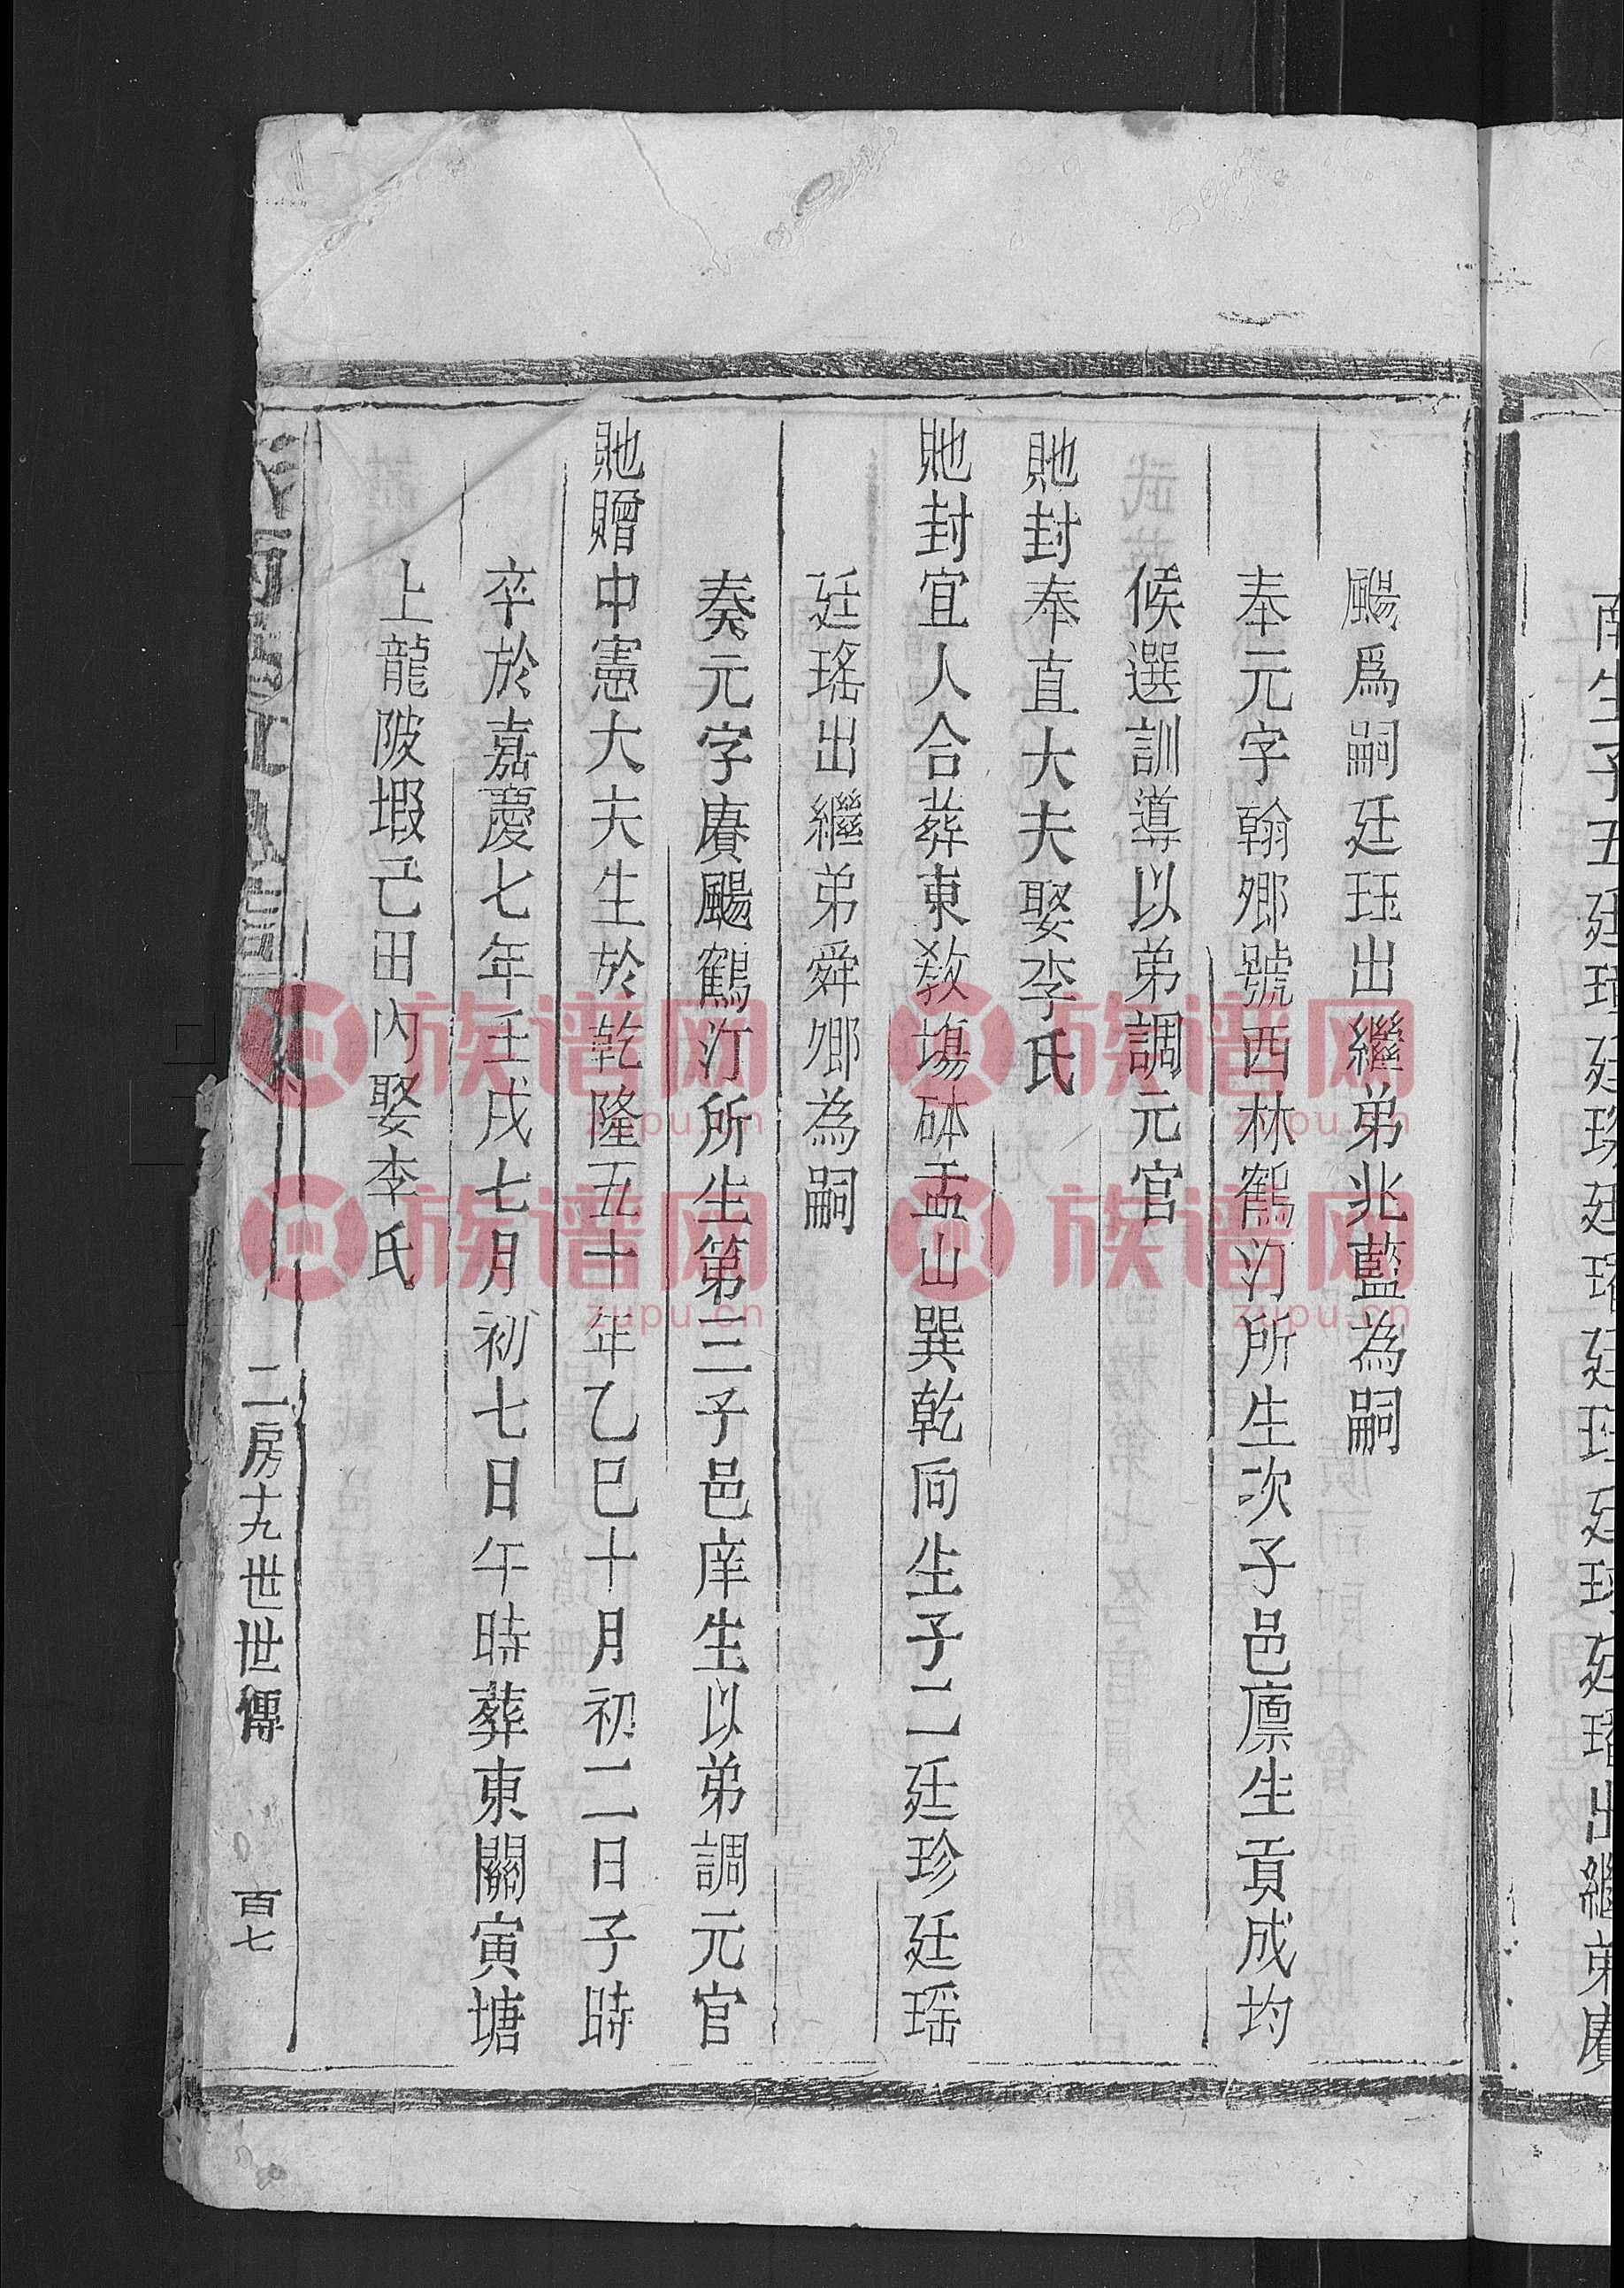 颺爲嗣廷珏出繼弟兆藍為嗣
奉元字翰卿號西林鶴汀所生次子邑廪生貢成均
候選訓導以弟調元官
貤封奉直大夫娶李氏
貤封宜人合葬東教塲砵盂山巽乾向生子二廷珍廷瑶
廷瑤出繼弟舜卿為嗣
奏元字賡颺鶴汀所生第三子邑庠生以弟調元官
貤贈中憲大夫生於乾隆五十年乙巳十月初二日子時
卒於嘉慶七年壬戌七月初七日午時葬東關寅塘
上龍陂塅己田內娶李氏
二房十九世世傳
百七
族谱网
zupu.cn
族谱网
zupu.cn
族谱网
zupu.cn
族谱网
zupu.cn